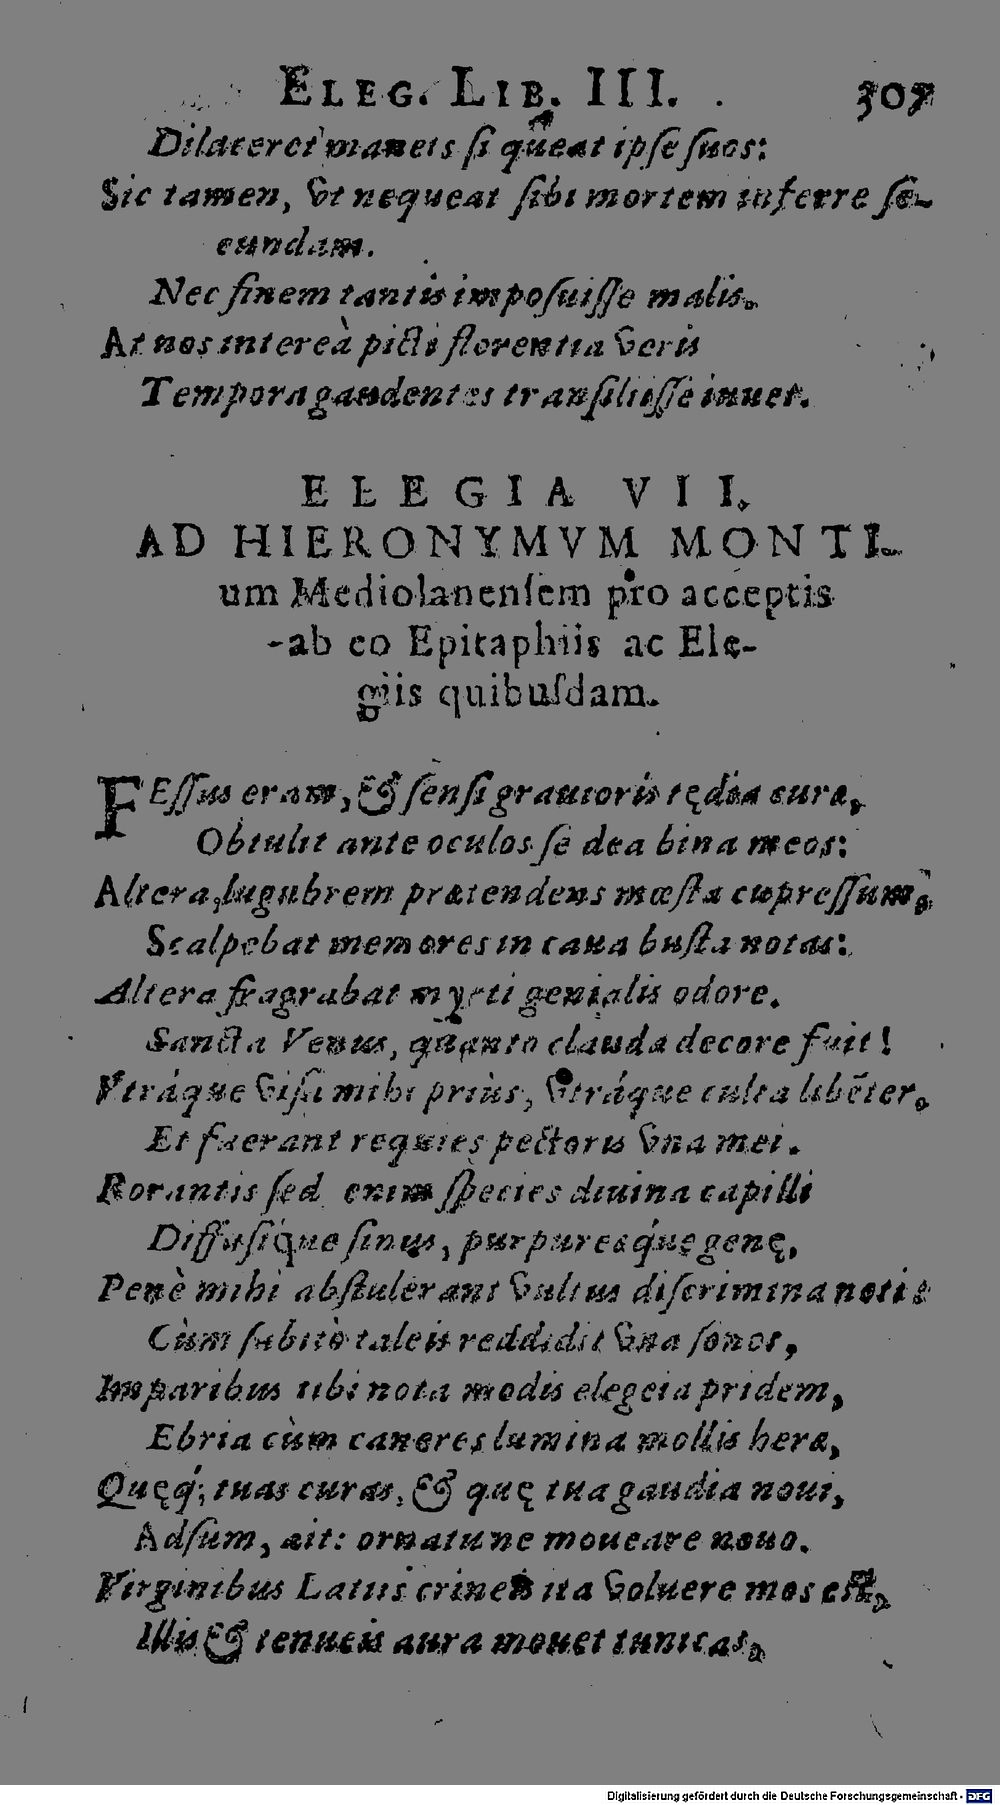 ELEG. LIB. III. 307
Dilaceret maneis si queat ipse suos:
Sic tamen, vt nequeat sibi mortem inferre se-
cundam.
Nec finem tantis imposuisse malis.
At nos intereà picti florentia veris
Tempora gaudentes transiliisse iuuet.
ELEGIA VII.
AD HIERONYMVM MONTI-
um Mediolanensem pro acceptis
ab eo Epitaphiis ac Ele-
giis quibusdam.
FEssus eram, & sensi grauioris tędia curæ,
Obtulit ante oculos se dea bina meos:
Altera, lugubrem prætendens mœsta cupressum,
Scalpebat memores in caua busta notas:
Altera fragrabat myrti genialis odore.
Sancta Venus, quanto clauda decore fuit!
Vtráque visa mihi priùs, vtráque culta libēter,
Et fuerant requies pectoris vna mei.
Rorantis sed enim species diuina capilli
Diffusique sinus, purpureæque genę,
Penè mihi abstulerant vultus discrimina noti:
Cùm subitò taleis reddidit vna sonos,
Imparibus tibi nota modis elegeia pridem,
Ebria cùm caneres lumina mollis heræ,
Quęq; tuas curas, & quę tua gaudia noui,
Adsum, ait: ornatu ne moueare nouo.
Virginibus Latiis crineis ita voluere mos est,
Illis & tenueis aura mouet tunicas,
Digitalisierung gefördert durch die Deutsche Forschungsgemeinschaft - DFG